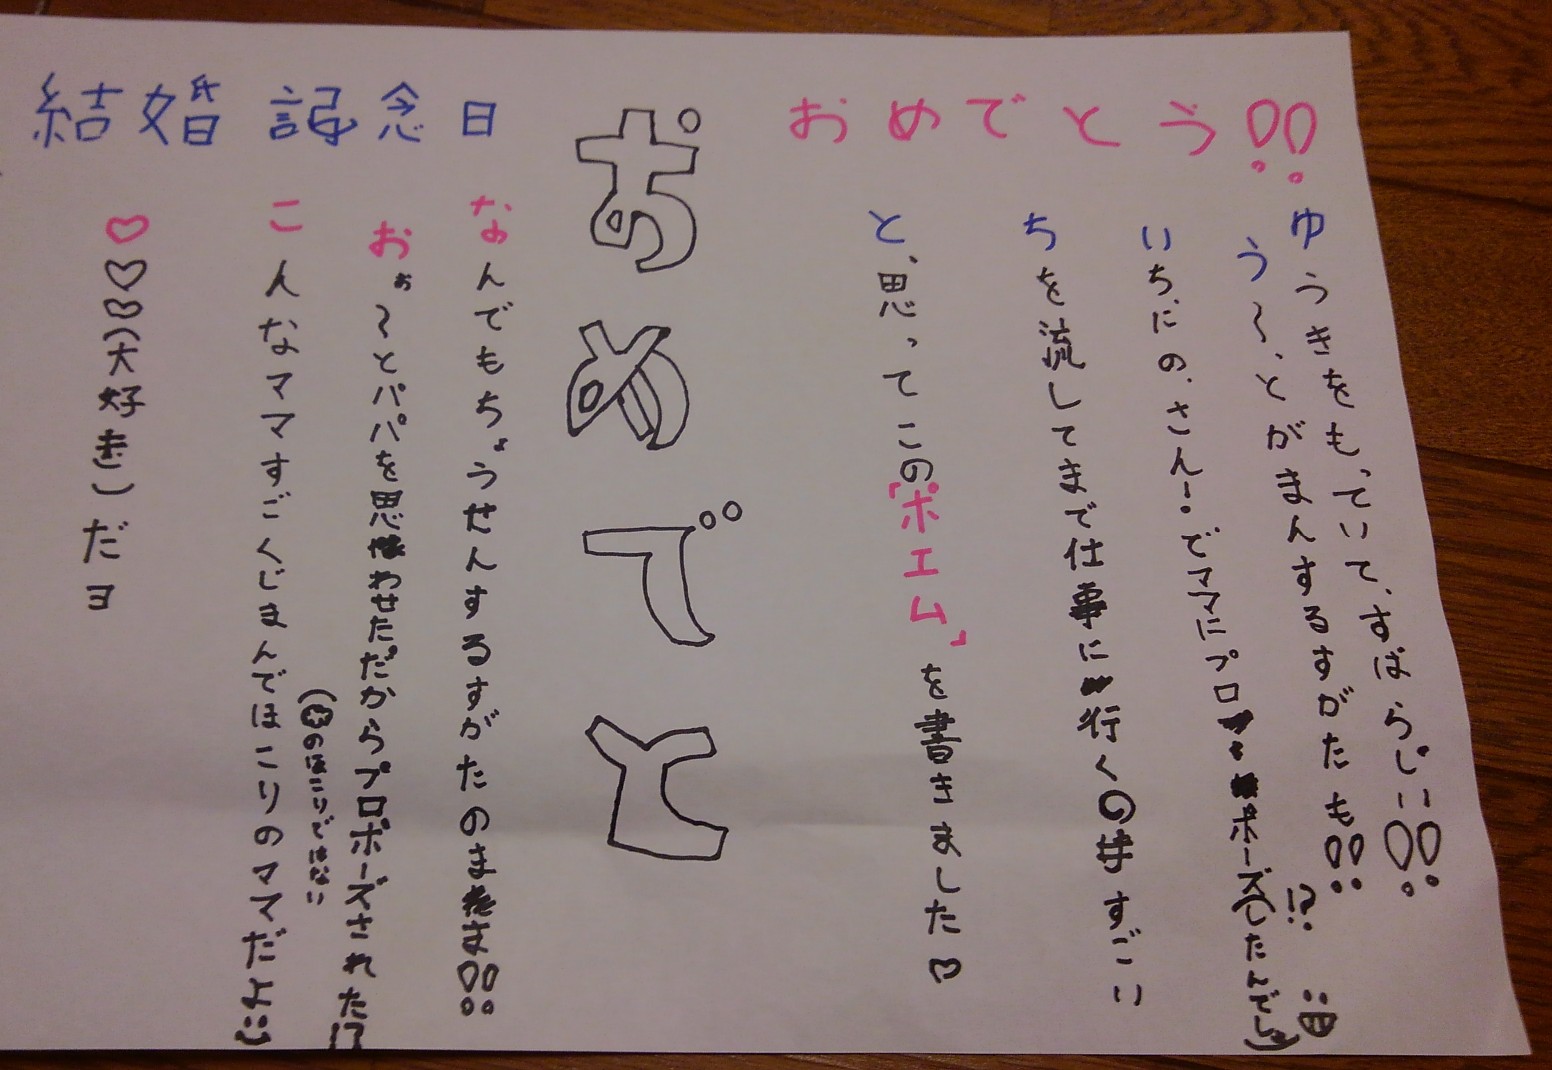 結婚記念日
おめでとう!!
ゆうきをもっていて、すばらしい!!
う〜、とがまんするすがたも!!
いち、にの、さん!でママにプロポーズ(したんでしょ)!?
ちを流してまで仕事に行くのすごい
と、思ってこの「ポエム」を書きました♡
おめでと
なんでもちょうせんするすがたのまま!!
おぉ〜とパパを思わせただからプロポーズされた!?
こんなママすごくじまんでほこりのママだよ
(のほこりではない
♡♡♡(大好き)だヨ